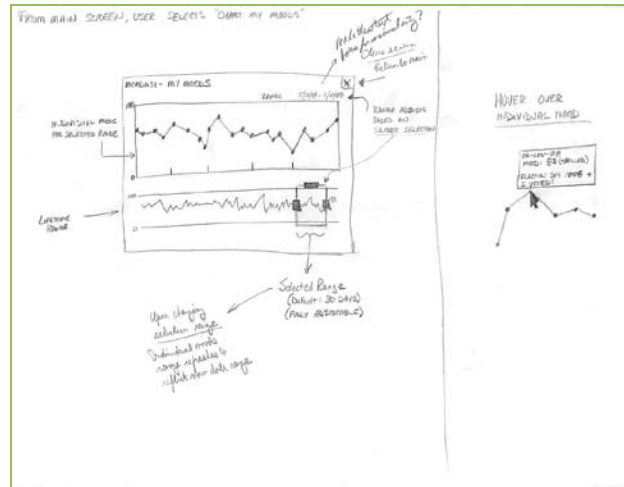 FROM MAIN SCREEN, USER SELECTS "CHART MY MOODS"
Close screen
Return to main
MY MOODS
RANGE
100
INDIVIDUAL MOODS
FOR SELECTED RANGE
0
RANGE ADJUSTS
BASED ON
SLIDER SELECTION
100
LIFETIME
RANGE
0
Selected Range
(DEFAULT: 30 DAYS)
(FULLY ADJUSTABLE)
Upon changing
selection range
Individual moods
range refreshes to
reflect new date range
HOVER OVER
INDIVIDUAL MOOD
MOOD:
ELECTION DAY
I VOTED!